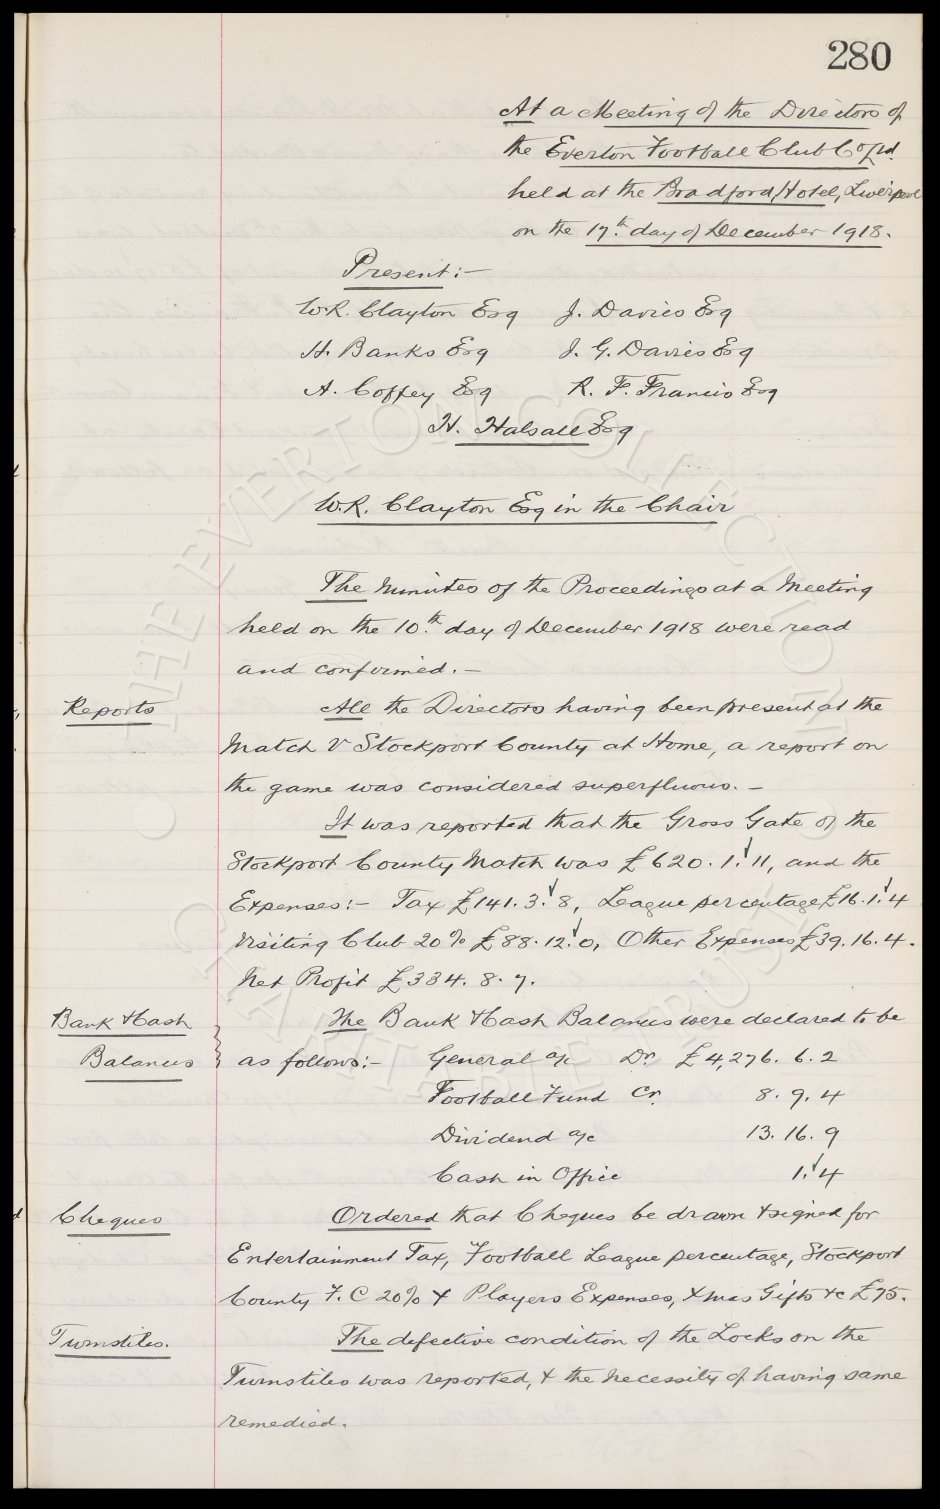 280
At a Meeting of the Directors of
the Everton Football Club Co Ltd.
held at the Bradford Hotel, Liverpool
on the 17th day of December 1918.
Present:-
W.R. Clayton Esq J. Davies Esq
H. Banks Esq J. G. Davies Esq
A. Coffey Esq R. F. Francis Esq
H. Halsall Esq
W.R. Clayton Esq in the Chair
The Minutes of the Proceedings at a Meeting
held on the 10th day of December 1918 were read
and confirmed.-
Reports All the Directors having been present at the
Match v Stockport County at Home, a report on
the game was considered superfluous.-
It was reported that the Gross Gate of the
Stockport County Match was £620. 1. 11, and the
Expenses:- Tax £141. 3. 8, League percentage £16. 1. 4
Visiting Club 20% £88. 12. 0, Other Expenses £39. 16. 4.
Net Profit £334. 8. 7.
Bank & Cash The Bank & Cash Balances were declared to be
Balances as follows:- General a/c Dr £4,276. 6. 2
Football Fund Cr. 8. 9. 4
Dividend a/c 13. 16. 9
Cash in Office 1. 4
Cheques Ordered that Cheques be drawn & signed for
Entertainment Tax, Football League percentage, Stockport
County F.C 20% & Players Expenses, Xmas Gifts &c £75.
Turnstiles. The defective condition of the Locks on the
Turnstiles was reported, & the necessity of having same
remedied.
THE EVERTON COLLECTION CHARITABLE TRUST